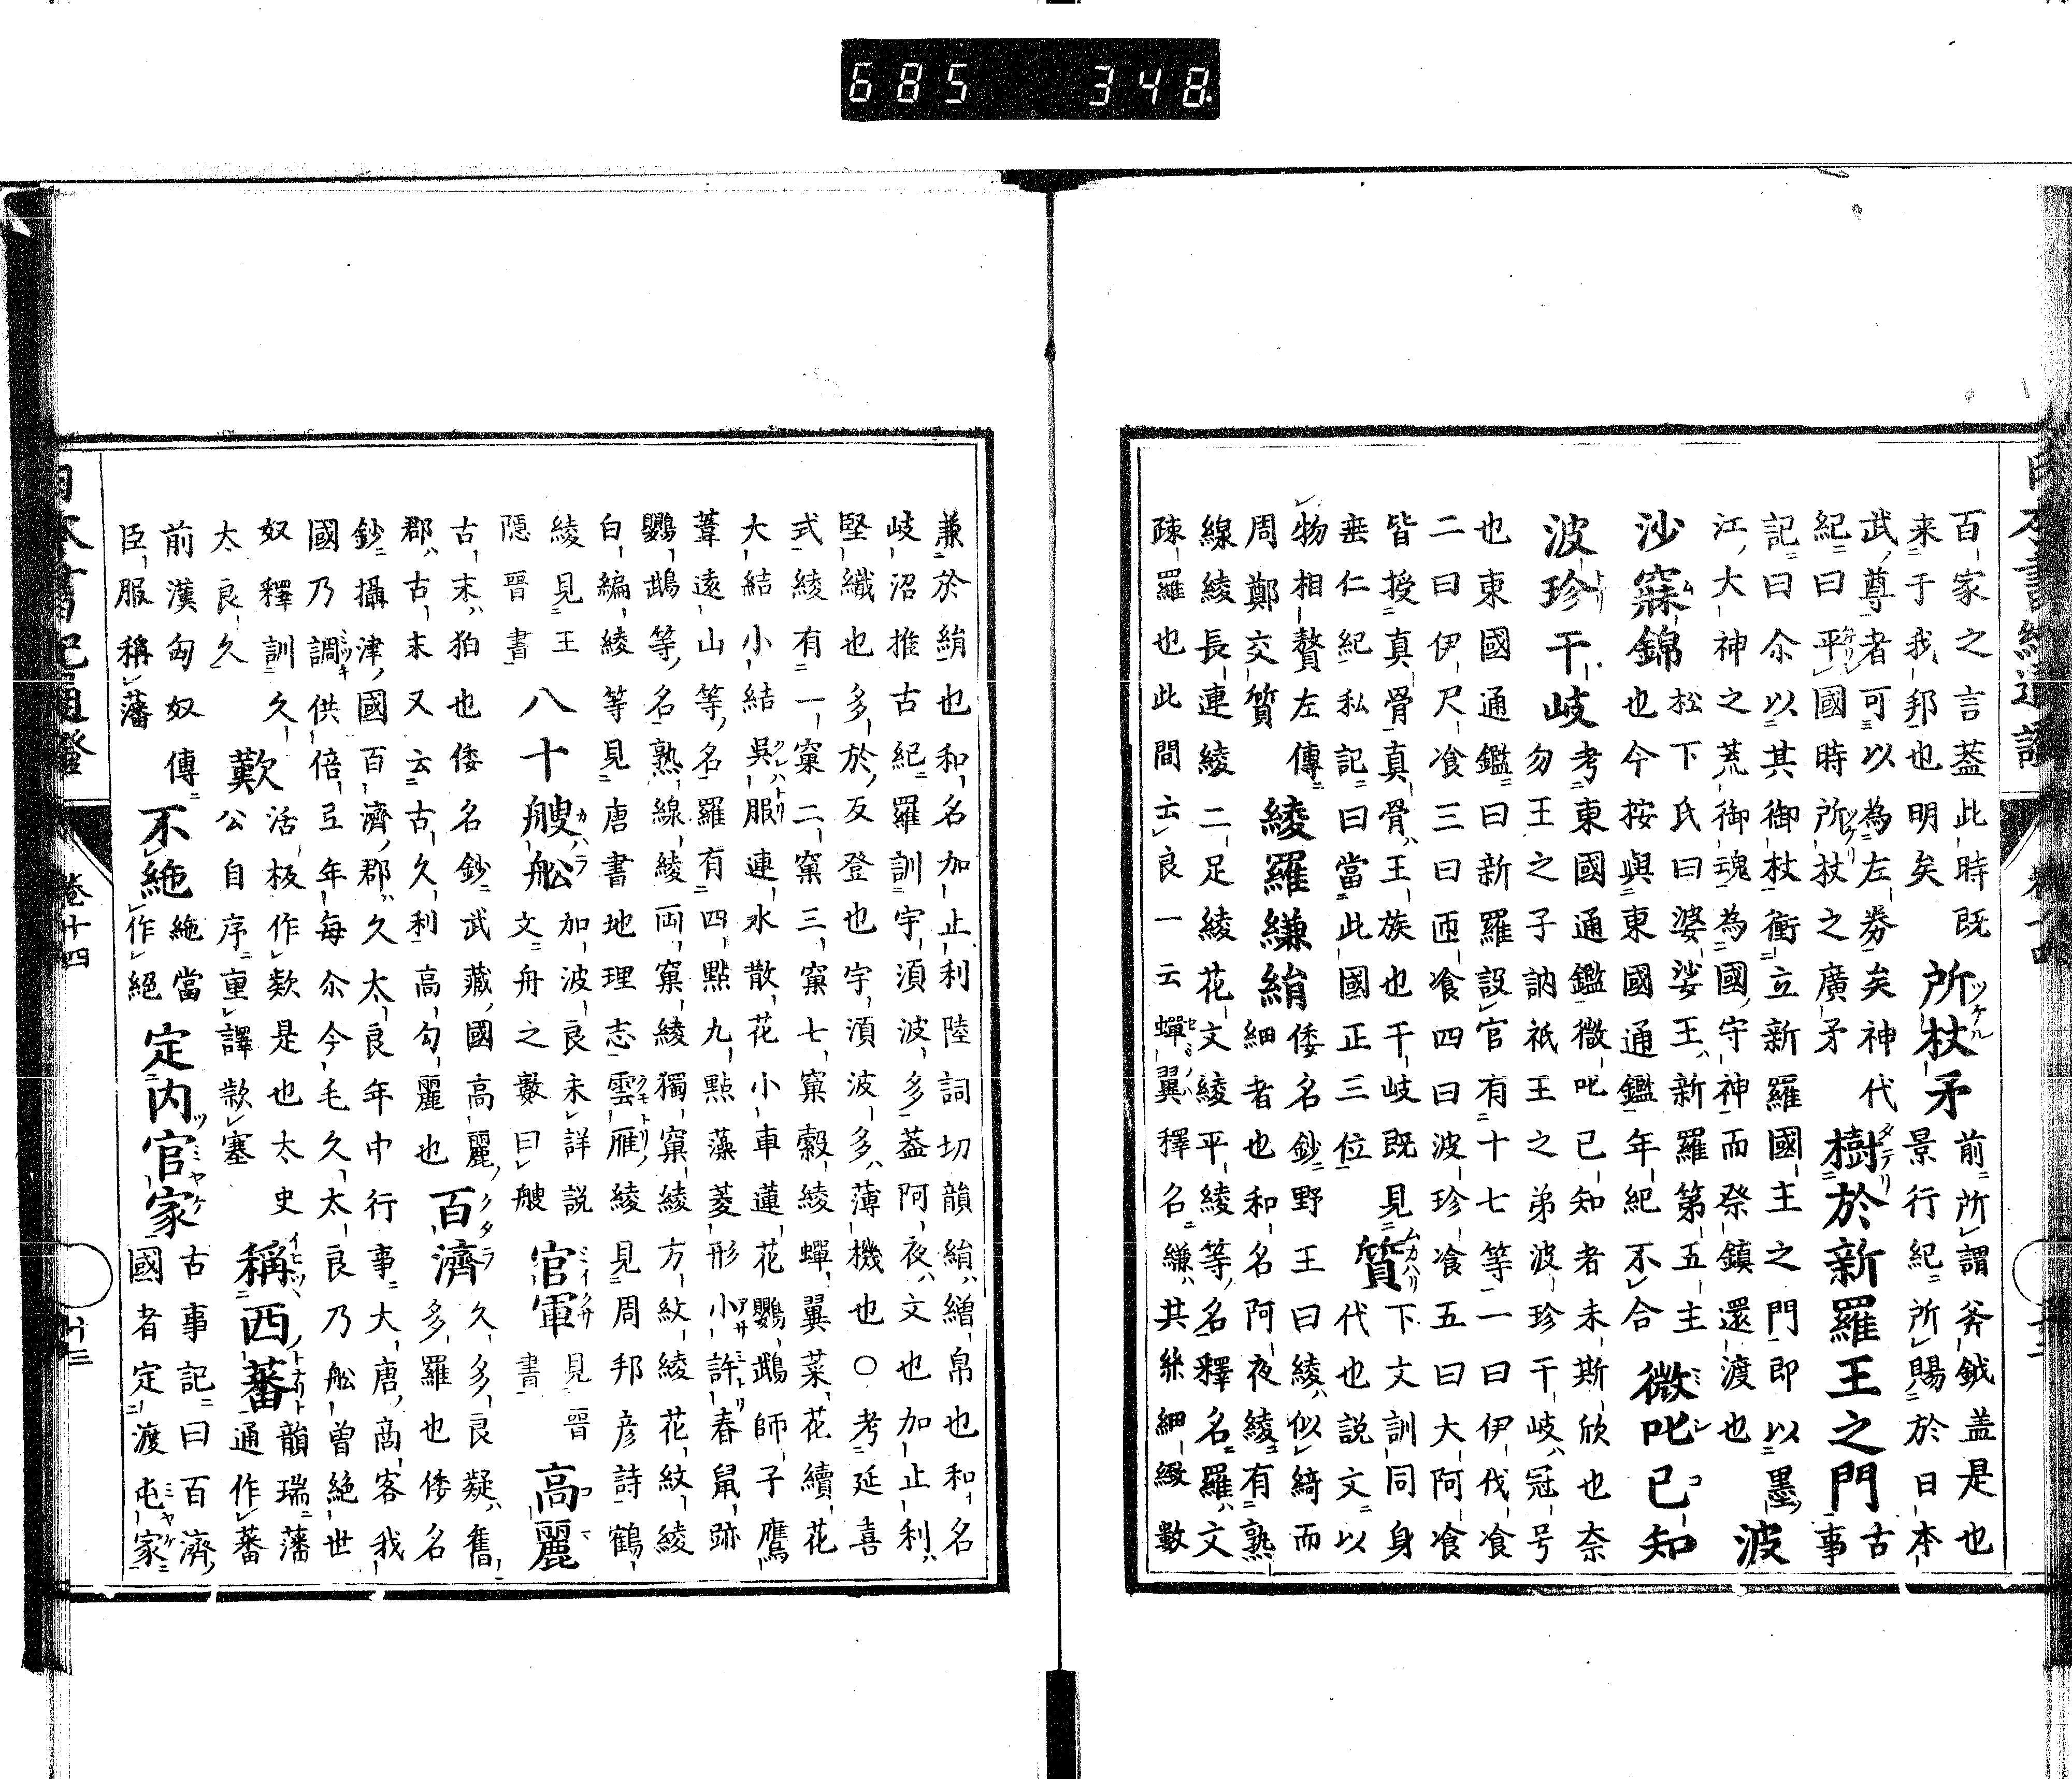 百家之言葢此時既
来于我邦也明矣
所杖矛
前所謂斧鉞盖是也
景行紀所賜於日本
武尊者可以為左券矣神代
紀曰平國時所杖之廣矛
樹於新羅王之門
古
事
記曰尒以其御杖衝立新羅國主之門即以墨
江大神之荒御魂為國守神而祭鎮還渡也
波
沙寐錦
松下氏曰婆娑王新羅第五主
也今按與東國通鑑年紀不合
微叱已知
波珍干岐
考東國通鑑微叱已知者未斯欣也奈
勿王之子訥祇王之弟波珍干岐冠号
也東國通鑑曰新羅設官有十七等一曰伊伐飡
二曰伊尺飡三曰匝飡四曰波珍飡五曰大阿飡
皆授真骨真骨王族也干岐既見
垂仁紀私記曰當此國正三位
質
下文訓同身
代也説文以
物相贅左傳
周鄭交質
綾羅縑絹
倭名鈔野王曰綾似綺而
細者也和名阿夜綾有熟
線綾長連綾二足綾花文綾平綾等名釋名羅文
疎羅也此間云良一云蟬翼釋名縑其絲細緻數
兼於絹也和名加止利陸詞切韻絹繒帛也和名
岐沼推古紀羅訓宇湏波多葢阿夜文也加止利
堅織也多於反登也宇湏波多薄機也○考延喜
式綾有一窠二窠三窠七窠縠綾蟬翼菜花續花
大結小結吳服連水散花小車蓮花鸚鵡師子鷹
葦遠山等名羅有四點九點藻菱形小許春鼠跡
鸚鵡等名熟線綾両窠綾獨窠綾方紋綾花紋綾
白編綾等見唐書地理志雲雁綾見周邦彦詩鶴
綾見王
隠晋書
八十艘舩
加波良未詳説
文舟之數曰艘
官軍
見晋
書
高麗
古末狛也倭名鈔武蔵國高麗
郡古末又云古久利高勾麗也
百濟
久多良疑舊
多羅也倭名
鈔攝津國百濟郡久太良年中行事大唐啇客我
國乃調供倍弖年每尒今毛久太良乃舩曽絶世
奴釋訓久
太良久
歎
活板作欵是也太史
公自序重譯款塞
稱西蕃
韻瑞藩
通作蕃
前漢匈奴傳
臣服稱藩
不絁
絁當
作絕
定内官家
古事記曰百濟
國者定渡屯家
卷十四
685 348